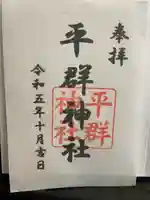 奉拝
平群神社
平群
神社
令和五年十月吉日